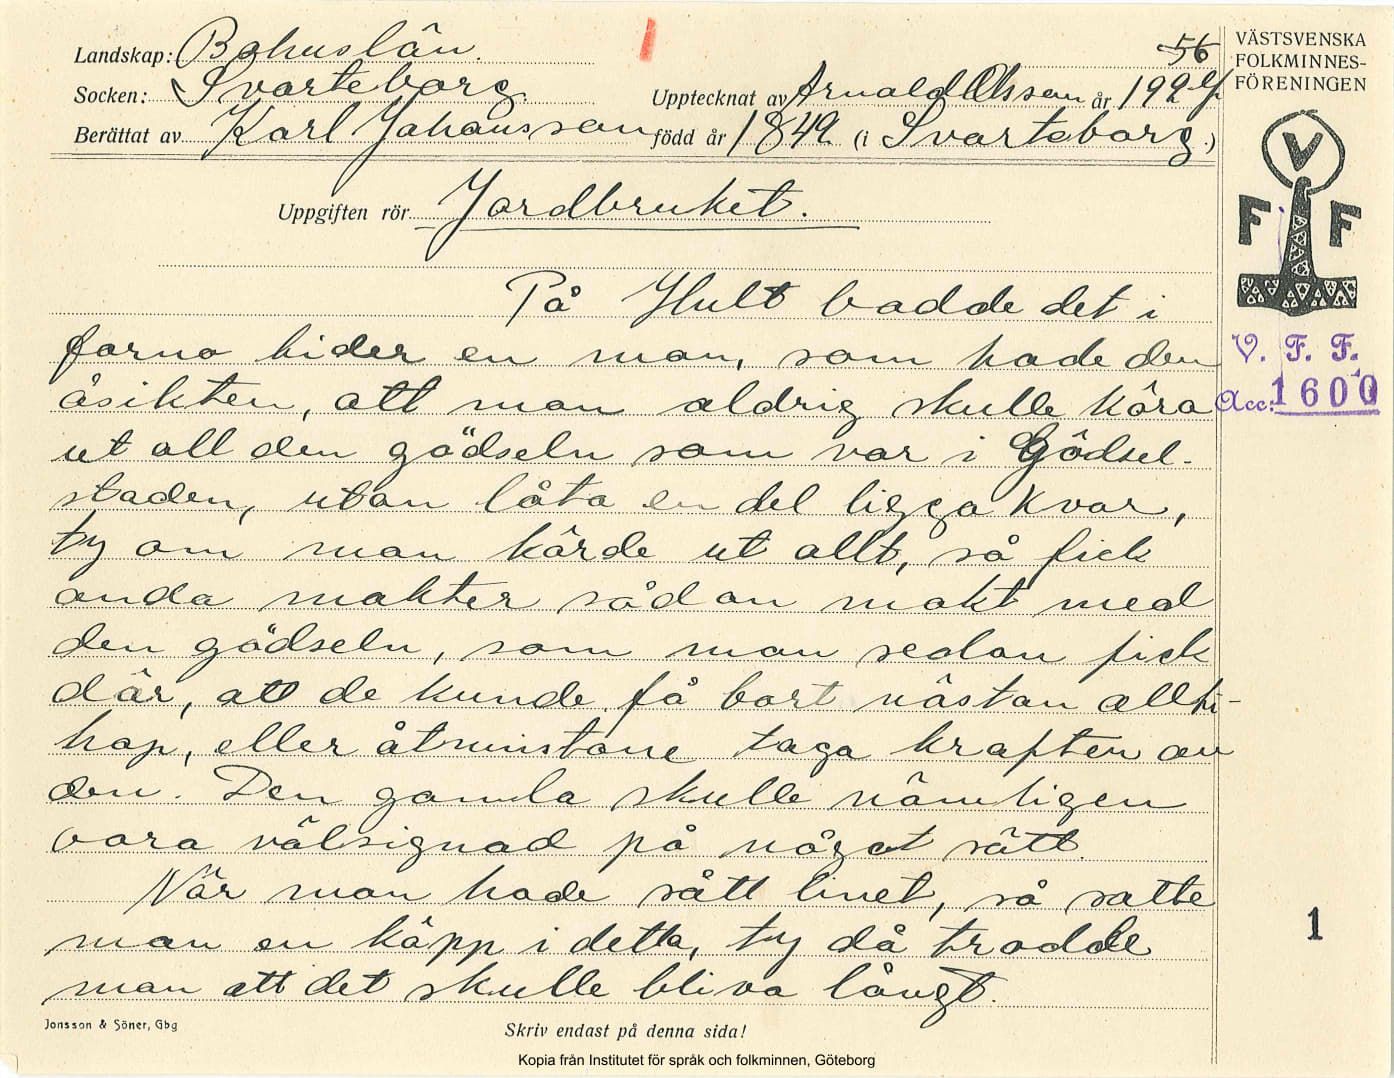 Landskap: Bohuslän.
56
Socken: Svarteborg.
Upptecknat av Arnold Olsson år 1924
Berättat av Karl Johansson född år 1849 (i Svarteborg.)
VÄSTSVENSKA
FOLKMINNES-
FÖRENINGEN
V
F F
V. F. F.
Acc: 1600
Uppgiften rör Jordbruket.
På Hult badde det i
forna tider en man, som hade den
åsikten, att man aldrig skulle köra
ut all den gödseln som var i Gödsel-
staden, utan låta en del ligga kvar,
ty om man körde ut allt, så fick
onda makter sådan makt med
den gödseln, som man sedan fick
där, att de kunde få bort nästan allti-
hop, eller åtminstone taga kraften av
den. Den gamla skulle nämligen
vara välsignad på något sätt.
När man hade sått linet, så satte
man en käpp i detta, ty då trodde
man att det skulle bliva långt.
1
Jonsson & Söner, Gbg
Skriv endast på denna sida!
Kopia från Institutet för språk och folkminnen, Göteborg